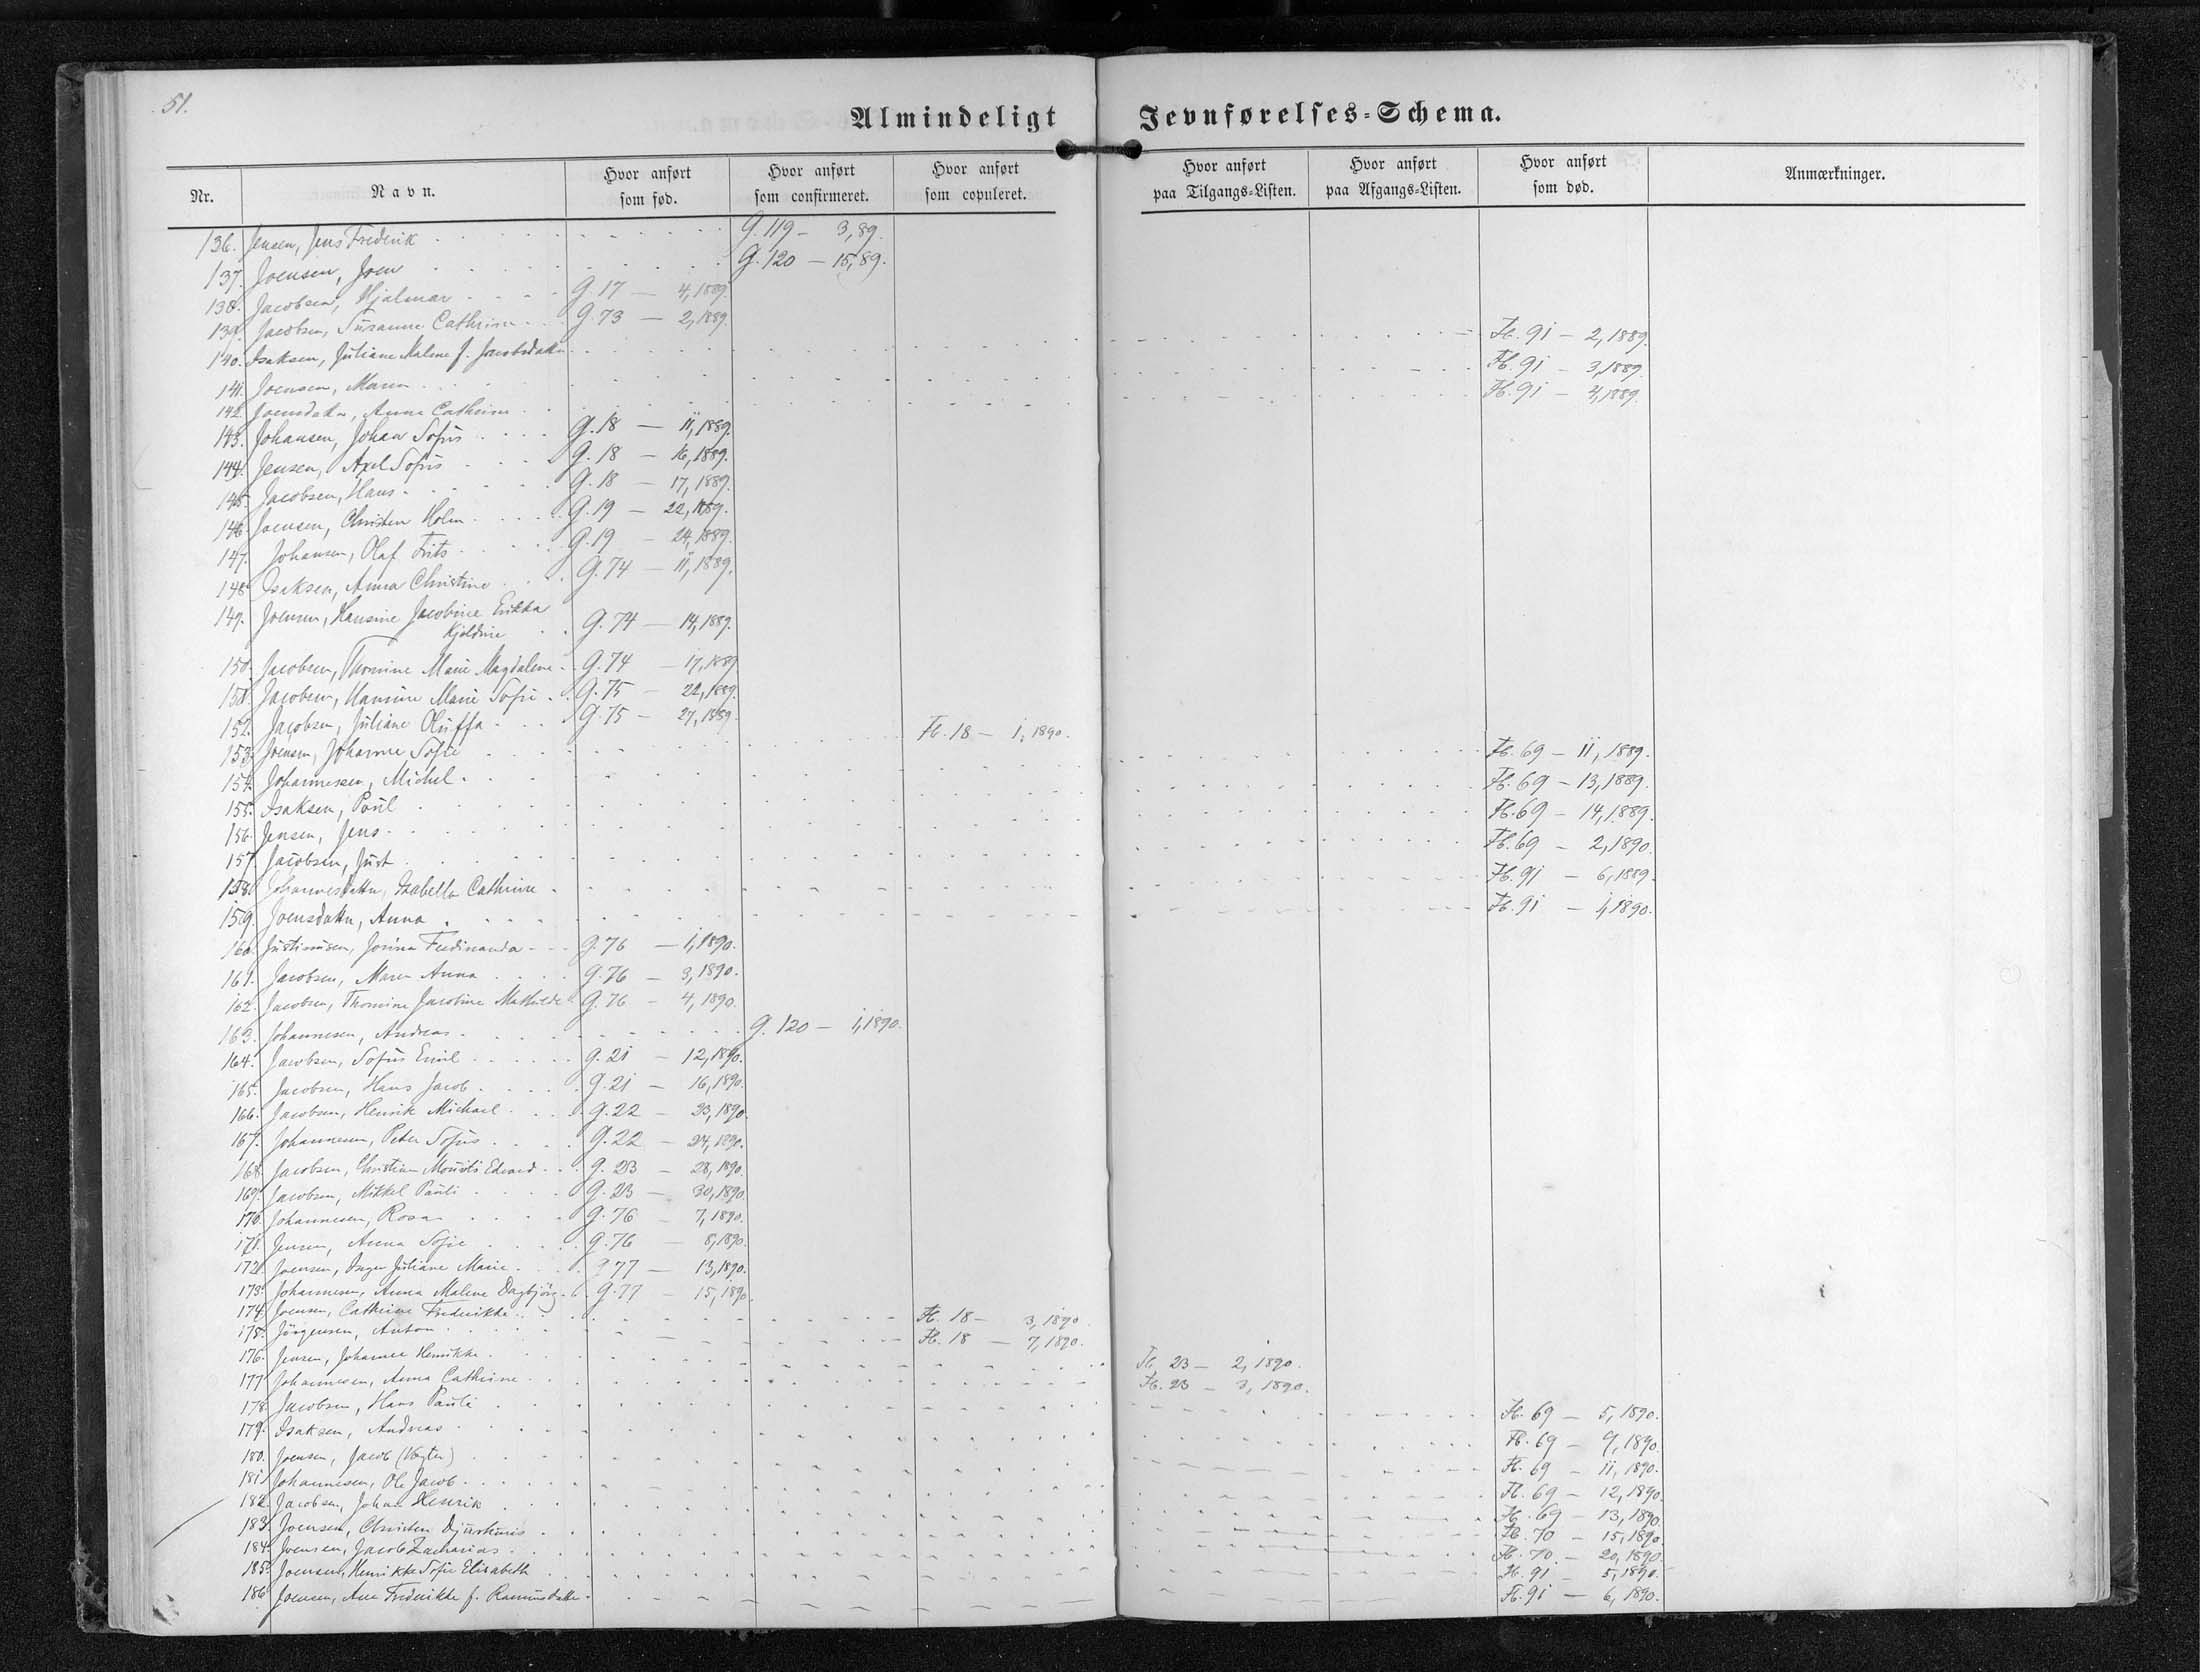 51.
Almindeligt Jevnførelses-Schema.
Nr. Navn. Hvor anført som fød. Hvor anført som confirmeret. Hvor anført som copuleret. Hvor anført paa Tilgangs-Listen. Hvor anført paa Afgangs-Listen. Hvor anført som død. Anmærkninger.
136. Jensen, Jens Frederik G. 119 – 3, 89.
137. Joensen, Joen G. 120 – 15, 89.
138. Jacobsen, Hjalmar G. 17 – 4, 1889.
139. Jacobsen, Susanne Cathrine G. 73 – 2, 1889.
140. Isaksen, Juliane Malene f. Jacobsdatter Fb. 91 – 2, 1889.
141. Joensen, Maren Fb. 91 – 3, 1889.
142. Joensdatter, Anna Cathrine Fb. 91 – 4, 1889.
143. Johansen, Johan Sofus G. 18 – 11, 1889.
144. Jensen, Axel Sofus G. 18 – 16, 1889.
145. Jacobsen, Hans G. 18 – 17, 1889.
146. Joensen, Christen Holm G. 19 – 22, 1889.
147. Johansen, Olaf Frits G. 19 – 24, 1889.
148. Isaksen, Anna Christine G. 74 – 11, 1889.
149. Joensen, Hansine Jacobine Erikka
Kjoldine G. 74 – 14, 1889.
150. Jacobsen, Thomine Marie Magdalene G. 74 – 17, 1889
151. Jacobsen, Hansine Marie Sofie G. 75 – 22, 1889.
152. Jacobsen, Juliane Oluffa G. 75 – 27, 1889.
153. Joensen, Johanne Sofie Fb. 18 – 1, 1890.
154. Johannessen, Michel Fb. 69 – 11, 1889.
155. Isaksen, Poul Fb. 69 – 13, 1889.
156. Jensen, Jens Fb. 69 – 14, 1889.
157. Jacobsen, Just Fb. 69 – 2, 1890.
158. Johannesdatter, Isabella Cathrine Fb. 91 – 6, 1889.
159. Joensdatter, Anna Fb. 91 – 1, 1890.
160. Justinusen, Josina Ferdinanda G. 76 – 1, 1890.
161. Jacobsen, Maren Anna G. 76 – 3, 1890.
162. Jacobsen, Thomine Jacobine Mathilde G. 76 – 4, 1890.
163. Johannesen, Andreas G. 120 – 1, 1890.
164. Jacobsen, Sofus Emil G. 21 – 12, 1890.
165. Jacobsen, Hans Jacob G. 21 – 16, 1890.
166. Jacobsen, Henrik Michael G. 22 – 23, 1890.
167. Johannesen, Peter Sofus G. 22 – 24, 1890.
168. Jacobsen, Christian Mouritz Edvard G. 23 – 28, 1890.
169. Jacobsen, Mikkel Pauli G. 23 – 30, 1890.
170. Johannesen, Rosa G. 76 – 7, 1890.
171. Jensen, Anna Sofie G. 76 – 8, 1890.
172. Joensen, Inger Juliane Marie G. 77 – 13, 1890.
173. Johannesen, Anna Malene Dagbjörg G. 77 – 15, 1890.
174. Joensen, Cathrine Frederikke Fb. 18 – 3, 1890
175. Jörgensen, Anton Fb. 18 – 7, 1890.
176. Jensen, Johanne Henrikke Fb. 23 – 2, 1890.
177. Johannesen, Anna Cathrine Fb. 23 – 3, 1890.
178. Jacobsen, Hans Pauli Fb. 69 – 5, 1890.
179. Isaksen, Andreas Fb. 69 – 9, 1890.
180. Joensen, Jacob (Vægter) Fb. 69 – 11, 1890.
181. Johannesen, Ole Jacob Fb. 69 – 12, 1890.
182. Jacobsen, Johan Henrik Fb. 69 – 13, 1890.
183. Joensen, Christen Djurhuus Fb. 70 – 15, 1890.
184. Joensen, Jacob Zacharias Fb. 70 – 20, 1890.
185. Joensen, Henrikke Sofie Elisabeth Fb. 91 – 5, 1890.
186. Joensen, Ane Frederikke f. Rasmusdatter Fb. 91 – 6, 1890.